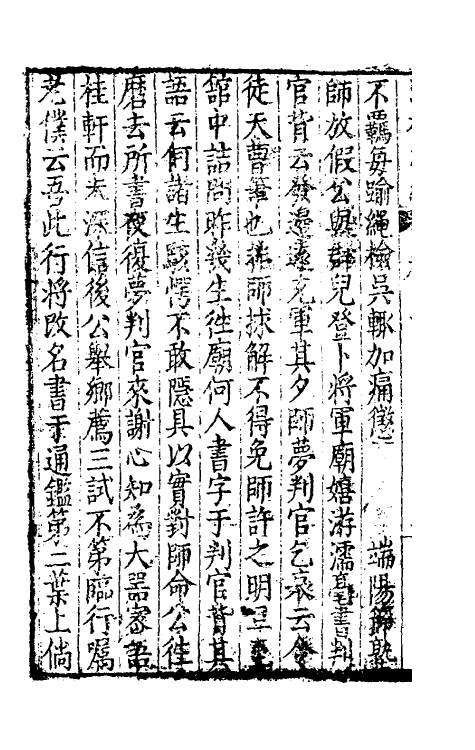 不羈每踰繩檢吳輒加痛懲　端陽節塾
師放假公與群兒登卜將軍廟嬉游濡毫書判
官背云發邊遠充軍其夕師夢判官乞哀云
徒天曹筆也非師拔解不得免師許之明
館中詰問昨幾生往廟何人書字于判官背其
語云何諸生駭愕不敢隱具以實對師命公往
磨去所書夜復夢判官來謝心知為大器密語
桂軒而未深信後公舉鄉薦三試不第臨行囑
老僕云吾此行將改名書于通鑑第二葉上倘